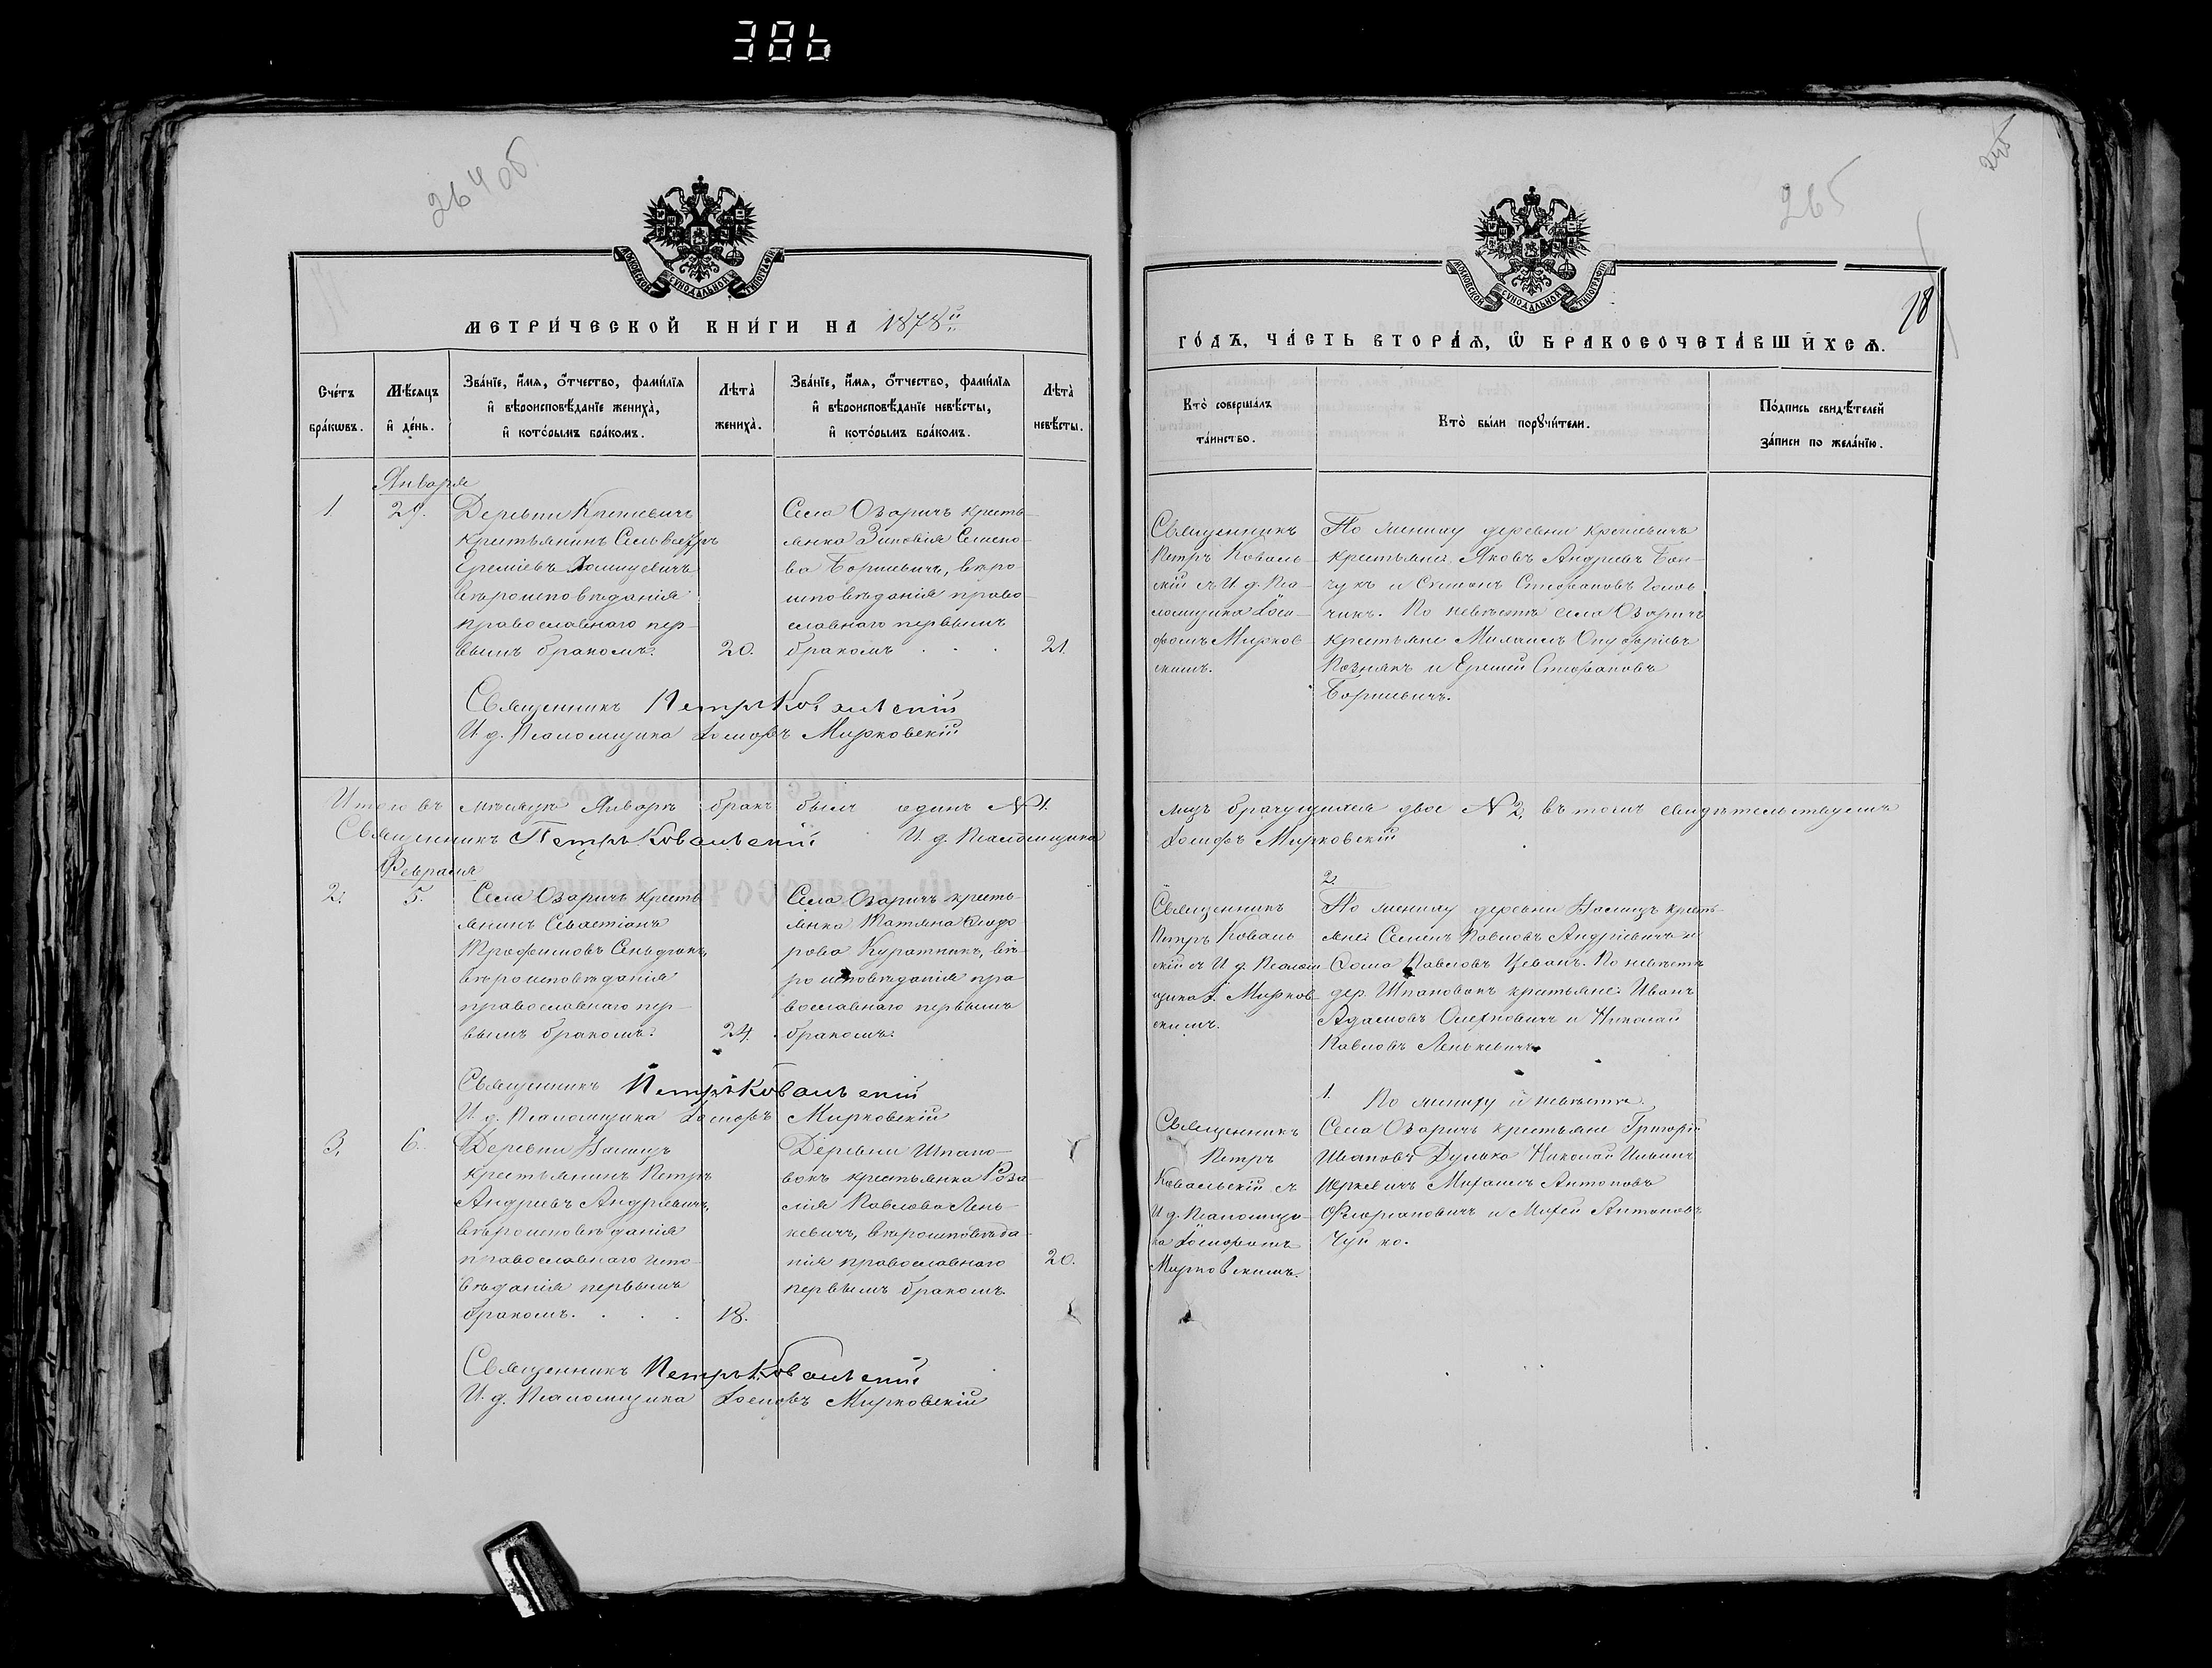 386
264 об
МОСКОВСКОЙ СѴНОДАЛЬНОЙ ТИПОГРАФІИ
МЕТРИ́ЧЕСКОЙ КНИ́ГИ НА 1878й
Сче́тъ бра́кѡвъ.
Мѣ́сяцъ и҆ де́нь.
Зва́нїе, и҆́мѧ, ѻ҆́тчество, фами́лїѧ
и҆ вѣроисповѣ́данїе жениха̀,
и҆ кото́рымъ бра́комъ.
Лѣта̀ жениха̀.
Зва́нїе, и҆́мѧ, ѻ҆́тчество, фами́лїѧ
и҆ вѣроисповѣ́данїе невѣ́сты,
и҆ кото́рымъ бра́комъ.
Лѣта̀ невѣ́сты.
Января
1
29.
Деревни Крытевичъ
крестьянинъ Сельвестръ
Ереміевъ
вѣроисповѣданія
православнаго пер-
вымъ бракомъ.
20.
Села Озаричъ кресть-
янка Зиновія Семено-
ва Боришевичъ, вѣро
исповѣданія право-
славнаго первымъ
бракомъ . . .
21.
Священникъ Петръ Ковальскій
И. д. Псаломщика Іосифъ Мирковскій
Итого въ мѣсяцѣ Январѣ бракъ былъ одинъ № 1.
Священникъ Петръ Ковальскій И. д. Псаломщика
Февраля
2.
5.
Села Озаричъ кресть
янинъ Севастіанъ
Трофимовъ
вѣроисповѣданія
православнаго пер-
вымъ бракомъ.
24.
Села Озаричъ кресть-
янка Татьяна Ѳеодо
рова Куратникъ, вѣ-
ро исповѣданія пра
вославнаго первымъ
бракомъ.
Священникъ Петръ Ковальскій
И. д. Псаломщика Іосифъ Мирковскій
3.
6.
Деревни
крестьянинъ Петръ
Андреевъ Андріевичъ,
вѣроисповѣданія
православнаго испо-
вѣданія первымъ
бракомъ. . . .
18.
Деревни Шпано-
вокъ крестьянка Роза-
лія Павлова Лень-
кевичъ, вѣроисповѣда-
нія православнаго
первымъ бракомъ.
20.
Священникъ Петръ Ковальскій
И. д. Псаломщика Іосифъ Мирковскій
265
МОСКОВСКОЙ СѴНОДАЛЬНОЙ ТИПОГРАФІИ
18
ГО́ДЪ, ЧА́СТЬ ВТОРА́Ѧ, Ѡ҆ БРАКОСОЧЕТА́ВШИХСѦ.
Кто̀ соверша́лъ та́инство.
Кто̀ бы́ли порꙋчи́тели.
По́дпись свидѣ́телей за́писи по жела́нїю.
Священникъ
Петръ Коваль-
скій съ И. д. Пса-
ломщика Іоси-
фомъ Мирков
скимъ.
По жениху деревни Крытевичъ
крестьяне Яковъ Андреевъ Бон-
чукъ и Симонъ Стефановъ Голов
чикъ. По невѣстѣ села Озаричъ
крестьяне Михаилъ Онуфріевъ
Познякъ и Еремей Стефановъ
Боришевичъ.
лицъ брачущихся двое № 2, въ томъ свидѣтельствуемъ
Іосифъ Мирковскій
2.
Священникъ
Петръ Коваль
скій съ И. д. Псалом-
щика І. Мирков-
скимъ.
По жениху деревни кресть-
яне: Семенъ Павловъ Андріевичъ и
Ѳома Павловъ Цеванъ. По невѣстѣ
дер. Шпановокъ крестьяне: Иванъ
Адамовъ и Николай
Павловъ Ленькевичъ.
1. По жениху и невѣстѣ
Священникъ
Петръ
Ковальскій съ
И. д. Псаломщи-
ка Іосифомъ
Мирковскимъ.
Села Озаричъ крестьяне Григорій
Ивановъ Дулько Николай Ильинъ
Юркевичъ Михаилъ Антоновъ
Флоріановичъ и Михей Антоновъ
Чуйко.